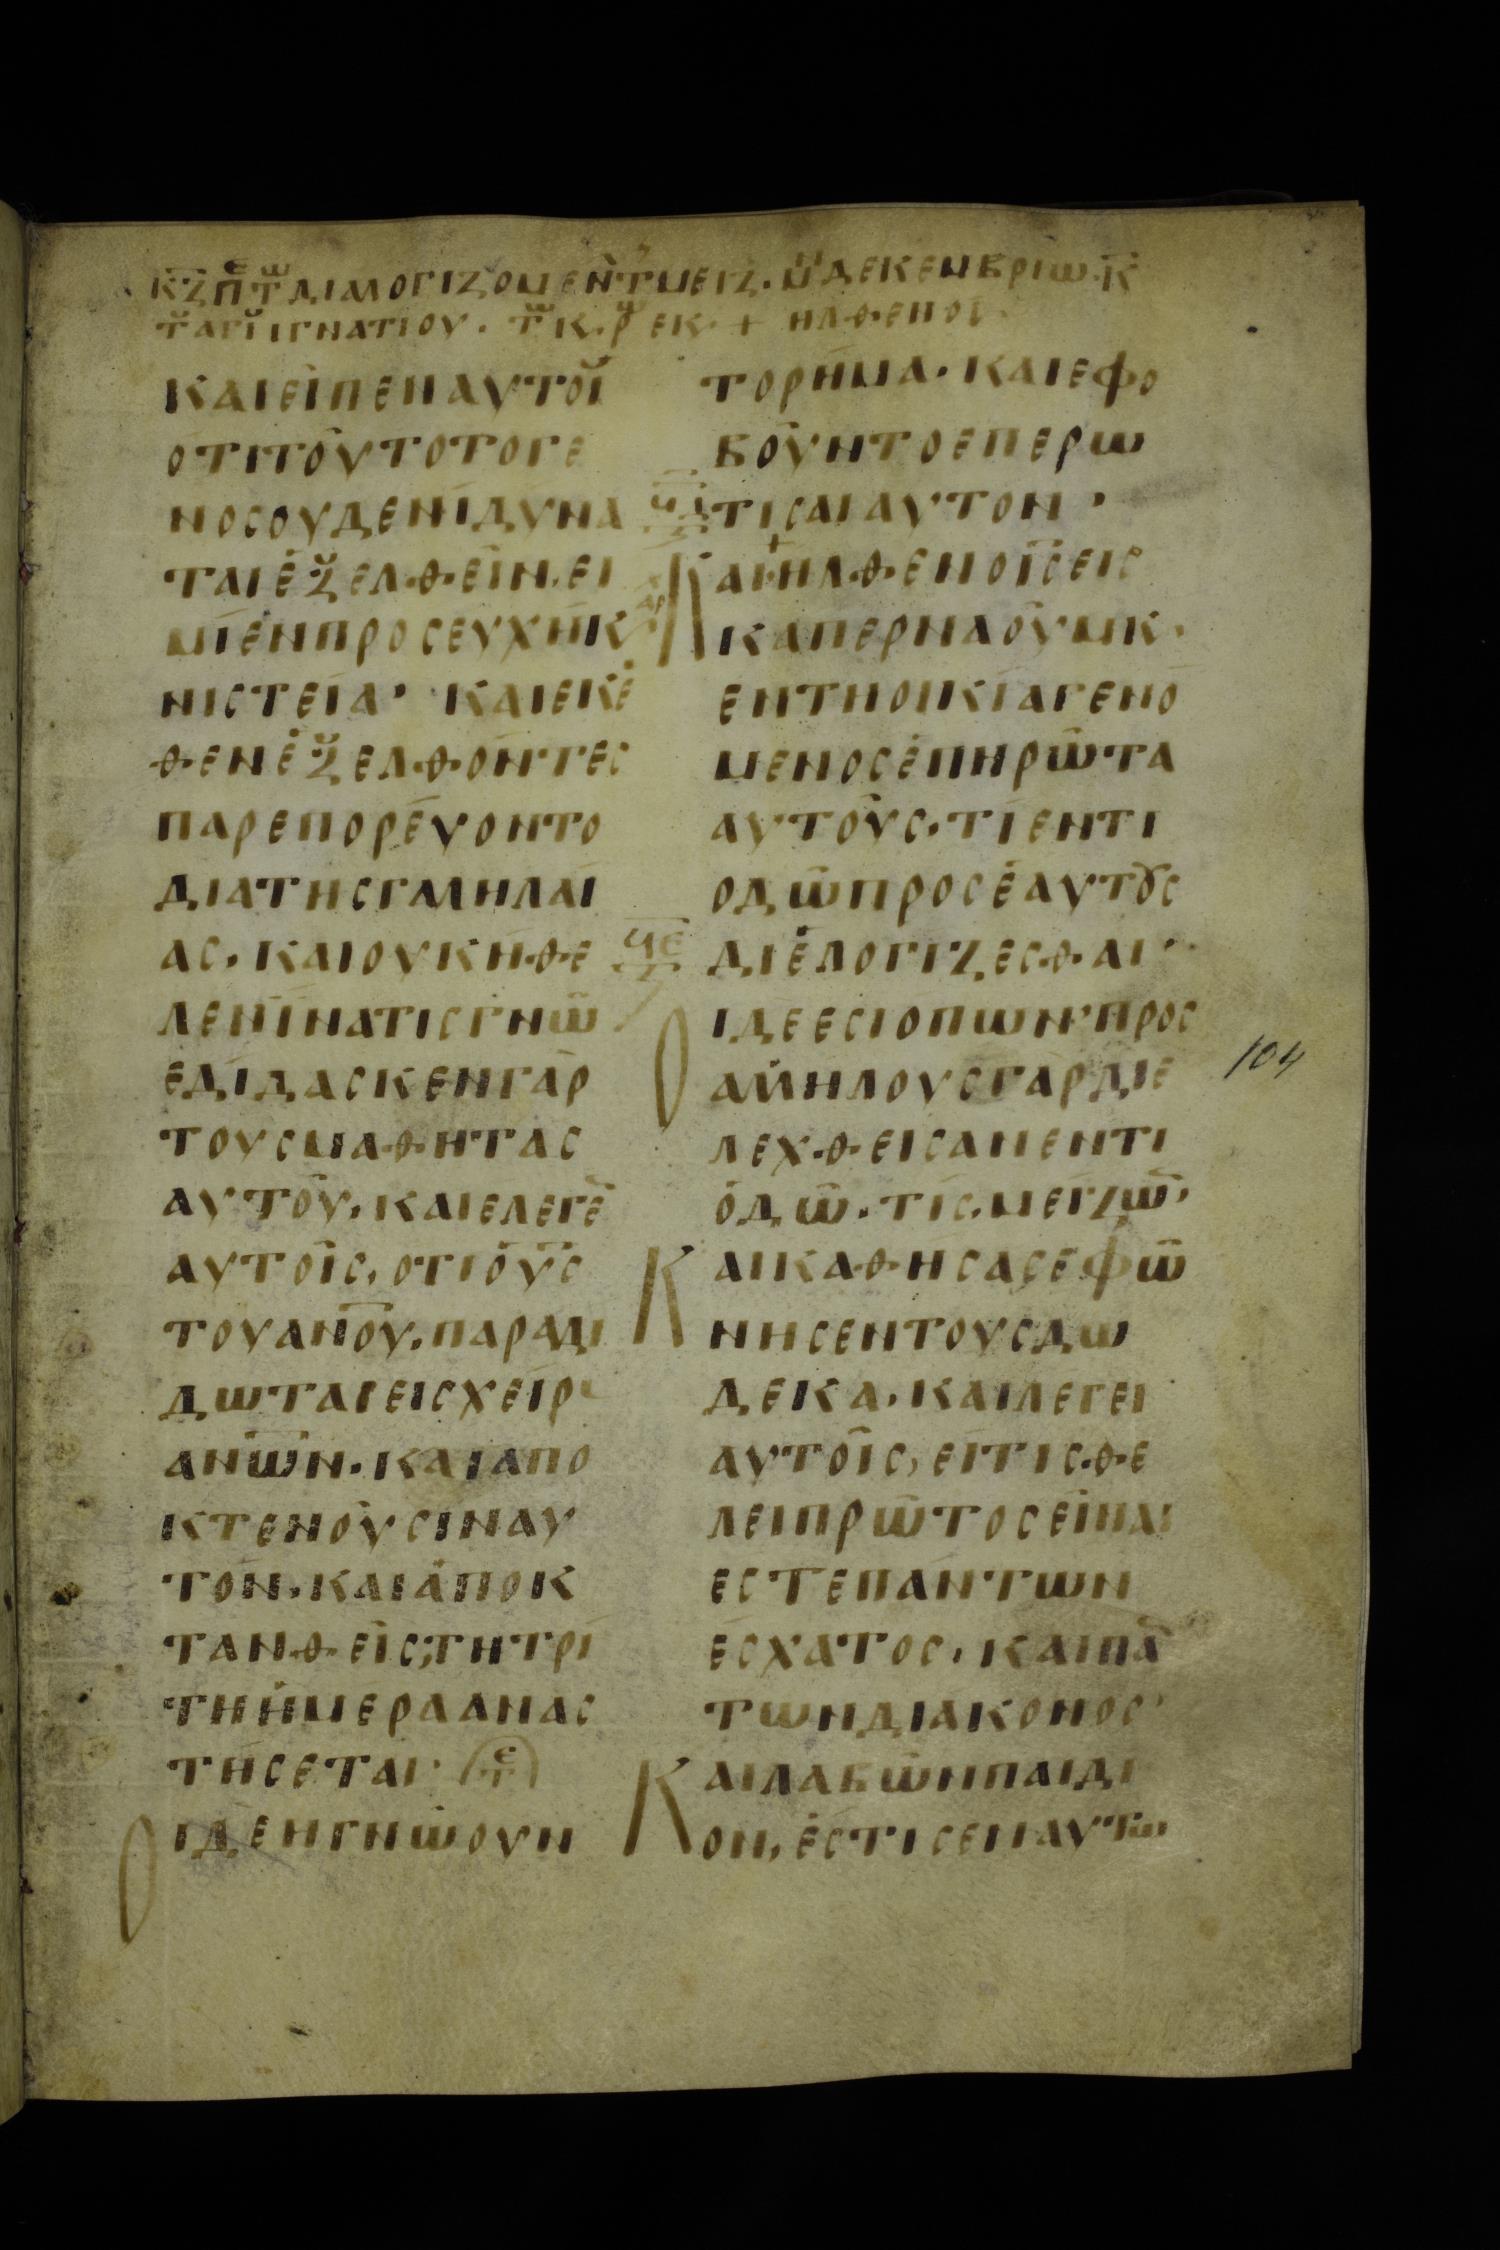 ΚΖ ΠΤ ΔΙΑΛΟΓΙΖΟΜΕΝ Τ ΜΕΙΖ · ΜΗ ΔΕΚΕΜΒΡΙΩ · Κ
ΤΥ ΑΓΙΥ ΙΓΝΑΤΙΟΥ · ΤΩ Κ · ΡΩ ΕΚ · + ΗΛΘΕΝ Ο ΙΣ
ΚΑΙΕΙΠΕΝΑΥΤΟΙ
ΟΤΙΤΟΥΤΟΤΟΓΕ
ΝΟΣΟΥΔΕΝΙΔΥΝΑ
ΤΑΙΕΞΕΛΘΕΙΝ, ΕΙ
ΜΙΕΝΠΡΟΣΕΥΧΗΚ
ΝΙΣΤΕΙΑ · ΚΑΙΕΚΕ
ΘΕΝΕΞΕΛΘΟΝΤΕΣ
ΠΑΡΕΠΟΡΕΥΟΝΤΟ
ΔΙΑΤΗΣΓΑΛΗΛΑΙ
ΑΣ · ΚΑΙΟΥΚΗΘΕ
ΛΕΝΙΝΑΤΙΣΓΝΩ
ΕΔΙΔΑΣΚΕΝΓΑΡ
ΤΟΥΣΜΑΘΗΤΑΣ
ΑΥΤΟΥ, ΚΑΙΕΛΕΓΕ
ΑΥΤΟΙΣ, ΟΤΙΟΥΣ
ΤΟΥΑΝΟΥ, ΠΑΡΑΔΙ
ΔΩΤΑΙΕΙΣΧΕΙΡΣ
ΑΝΩΝ · ΚΑΙΑΠΟ
ΚΤΕΝΟΥΣΙΝΑΥ
ΤΟΝ, ΚΑΙΑΠΟΚ
ΤΑΝΘΕΙΣ, ΤΗΤΡΙ
ΤΗΗΜΕΡΑΑΝΑΣ
ΤΗΣΕΤΑΙ · ΤΕ
ΟΙΔΕΗΓΝΩΟΥΝ
ΤΟΡΗΜΑ · ΚΑΙΕΦΟ
ΒΟΥΝΤΟΕΠΕΡΩ
ϞΔ ΤΙΣΑΙΑΥΤΟΝ ·
ΑΡ ΚΑΙ + ΗΛΘΕΝΟΙΣΕΙΣ
ΚΑΠΕΡΝΑΟΥΜΚ ·
ΕΝΤΗΟΙΚΙΑΓΕΝΟ
ΜΕΝΟΣΕΠΗΡΩΤΑ
ΑΥΤΟΥΣ · ΤΙΕΝΤΙ
ΟΔΩΠΡΟΣΕΑΥΤΟΥΣ
ϞΕ ΔΙΕΛΟΓΙΖΕΣΘΑΙ ·
ΟΙΔΕΕΣΙΟΠΩΝ · ΠΡΟΣ
ΑΛΛΗΛΟΥΣΓΑΡΔΙΕ
ΛΕΧΘΕΙΣΑΝΕΝΤΙ
ΟΔΩ · ΤΙΣ, ΜΕΙΖΩ ·
ΚΑΙΚΑΘΗΣΑΣΕΦΩ
ΝΗΣΕΝΤΟΥΣΔΩ
ΔΕΚΑ, ΚΑΙΛΕΓΕΙ
ΑΥΤΟΙΣ, ΕΙΤΙΣΘΕ
ΛΕΙΠΡΩΤΟΣΕΙΝΑΙ
ΕΣΤΕΠΑΝΤΩΝ
ΕΣΧΑΤΟΣ, ΚΑΙΠΑ
ΤΩΝΔΙΑΚΟΝΟΣ ·
ΚΑΙΛΑΒΩΝΠΑΙΔΙ
ΟΝ, ΕΣΤΙΣΕΝΑΥΤΩ
104